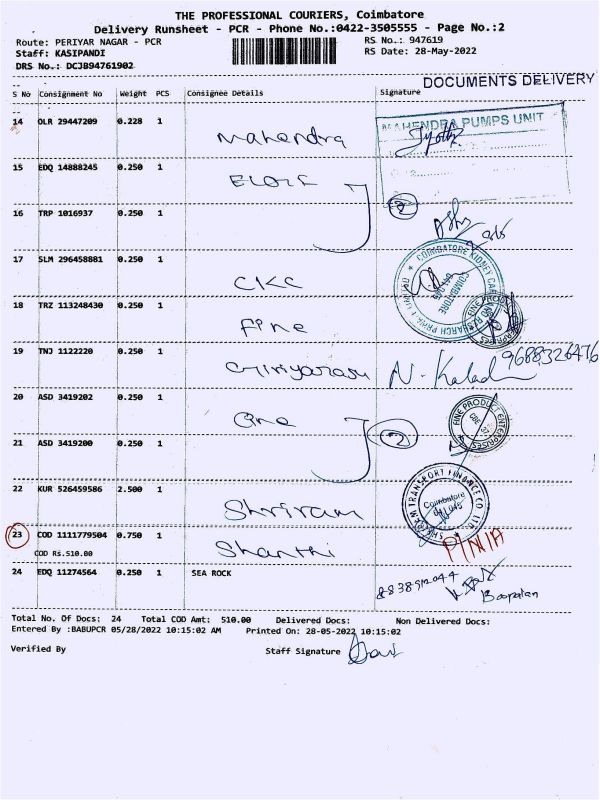 THE PROFESSIONAL COURIERS, Coimbatore
Delivery Runsheet - PCR - Phone No.:0422-3505555 - Page No.:2
Route: PERIYAR NAGAR - PCR RS No.: 947619
Staff: KASIPANDI RS Date: 28-May-2022
DRS No.: DCJB94761902
DOCUMENTS DELIVERY
S No Consignment No Weight PCS Consignee Details Signature
14 OLR 29447209 0.228 1 Mahendra
MAHENDRA PUMPS UNIT
Jyothi
15 EDQ 14888245 0.250 1
2
16 TRP 1016937 0.250 1
17 SLM 296458881 0.250 1 CKC
COIMBATORE KIDNEY CARE AND RESEARCH
COIMBATORE
641 045
18 TRZ 113248430 0.250 1 Fine
19 TNJ 1122220 0.250 1 Giriyarasu
9688326476
20 ASD 3419202 0.250 1
FINE PRODUCT ENTERPRISES
2
21 ASD 3419200 0.250 1
22 KUR 526459586 2.500 1 Shriram
SHRIRAM TRANSPORT FINANCE CO. LTD.
Coimbatore
641 045
23 COD 1111779504 0.750 1 Shanthi
COD Rs.510.00
24 EDQ 11274564 0.250 1 SEA ROCK
8838912044
Boopalan
Total No. Of Docs: 24 Total COD Amt: 510.00 Delivered Docs: Non Delivered Docs:
Entered By :BABUPCR 05/28/2022 10:15:02 AM Printed On: 28-05-2022 10:15:02
Verified By Staff Signature